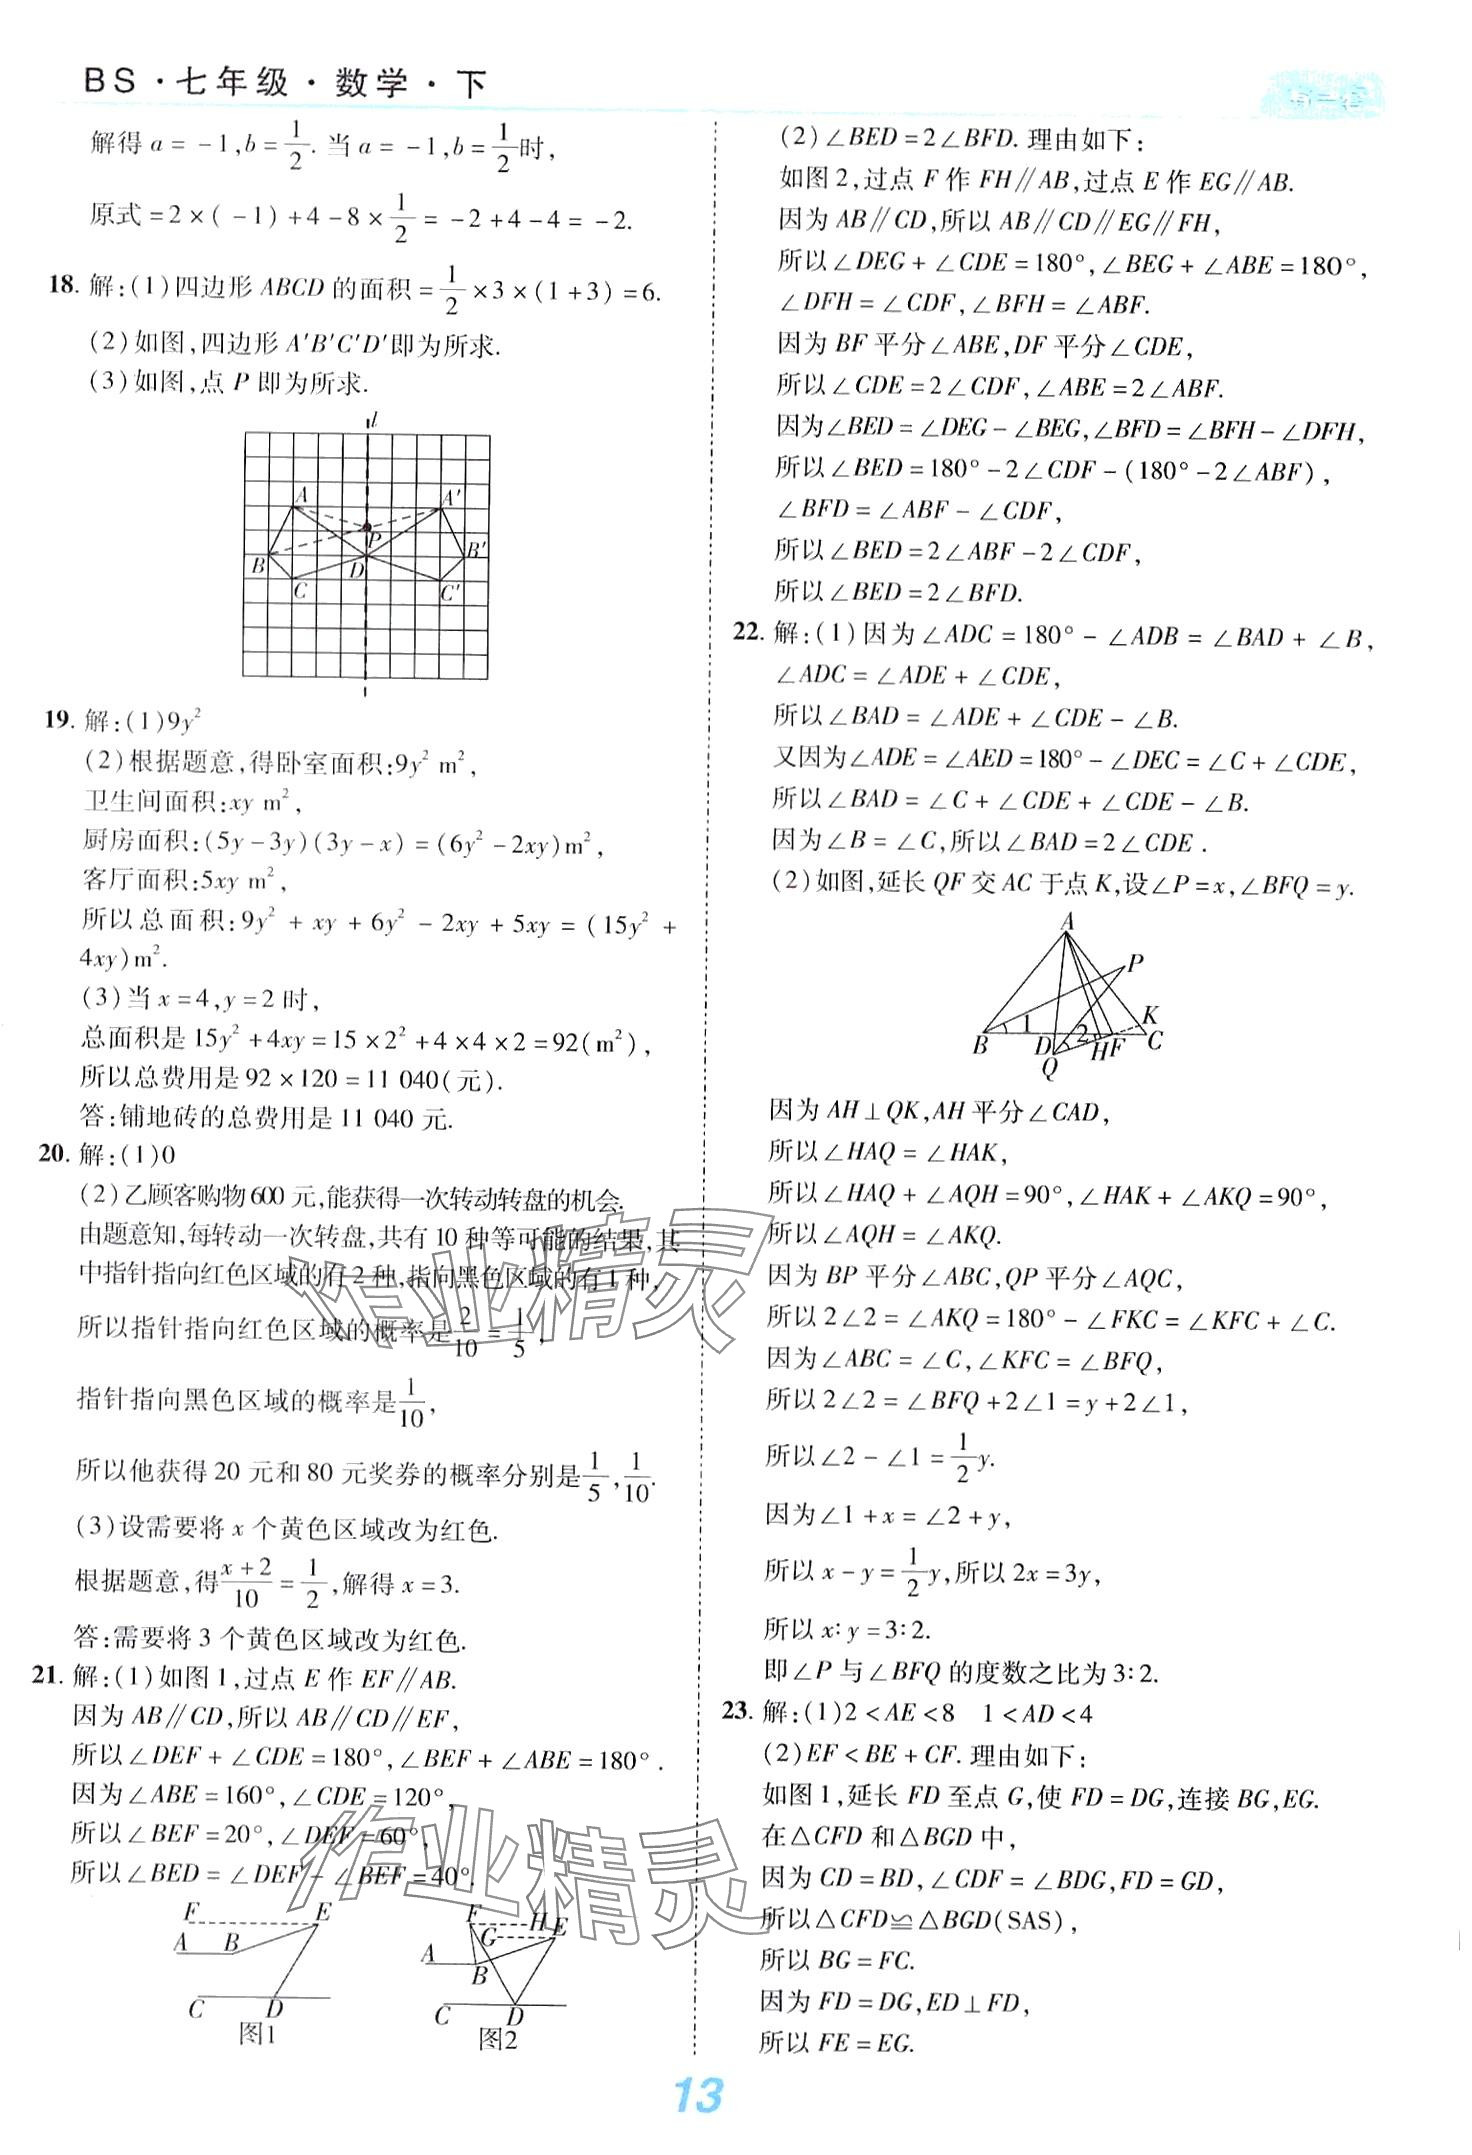 BS·七年级·数学·下
解得 a = -1,b = 1/2. 当 a = -1,b = 1/2时,
原式 = 2×(-1)+4-8×1/2 = -2+4-4 = -2.
18. 解:(1)四边形 ABCD 的面积 = 1/2 ×3×(1+3) = 6.
(2)如图,四边形 A′B′C′D′即为所求.
(3)如图,点 P 即为所求.
l
A A′
P
B D B′
C C′
19. 解:(1)9y²
(2)根据题意,得卧室面积:9y² m²,
卫生间面积:xy m²,
厨房面积:(5y-3y)(3y-x) = (6y²-2xy)m²,
客厅面积:5xy m²,
所以总面积:9y² + xy + 6y² - 2xy + 5xy = (15y² +
4xy)m².
(3)当 x=4,y=2 时,
总面积是 15y²+4xy=15×2²+4×4×2=92(m²),
所以总费用是 92×120=11 040(元).
答:铺地砖的总费用是 11 040 元.
20. 解:(1)0
(2)乙顾客购物 600 元,能获得一次转动转盘的机会.
由题意知,每转动一次转盘,共有 10 种等可能的结果,其
中指针指向红色区域的有 2 种,指向黑色区域的有 1 种,
所以指针指向红色区域的概率是 2/10 = 1/5,
指针指向黑色区域的概率是 1/10,
所以他获得 20 元和 80 元奖券的概率分别是 1/5, 1/10.
(3)设需要将 x 个黄色区域改为红色.
根据题意,得 (x+2)/10 = 1/2,解得 x=3.
答:需要将 3 个黄色区域改为红色.
21. 解:(1)如图 1,过点 E 作 EF∥AB.
因为 AB∥CD,所以 AB∥CD∥EF,
所以∠DEF+∠CDE=180°,∠BEF+∠ABE=180°.
因为∠ABE=160°,∠CDE=120°,
所以∠BEF=20°,∠DEF=60°,
所以∠BED=∠DEF-∠BEF=40°.
F E
A B
C D
图1
F H E
G
A B
C D
图2
(2)∠BED=2∠BFD. 理由如下:
如图 2,过点 F 作 FH∥AB,过点 E 作 EG∥AB.
因为 AB∥CD,所以 AB∥CD∥EG∥FH,
所以∠DEG+∠CDE=180°,∠BEG+∠ABE=180°,
∠DFH=∠CDF,∠BFH=∠ABF.
因为 BF 平分∠ABE,DF 平分∠CDE,
所以∠CDE=2∠CDF,∠ABE=2∠ABF.
因为∠BED=∠DEG-∠BEG,∠BFD=∠BFH-∠DFH,
所以∠BED=180°-2∠CDF-(180°-2∠ABF),
∠BFD=∠ABF-∠CDF,
所以∠BED=2∠ABF-2∠CDF,
所以∠BED=2∠BFD.
22. 解:(1)因为∠ADC=180°-∠ADB=∠BAD+∠B,
∠ADC=∠ADE+∠CDE,
所以∠BAD=∠ADE+∠CDE-∠B.
又因为∠ADE=∠AED=180°-∠DEC=∠C+∠CDE,
所以∠BAD=∠C+∠CDE+∠CDE-∠B.
因为∠B=∠C,所以∠BAD=2∠CDE.
(2)如图,延长 QF 交 AC 于点 K,设∠P=x,∠BFQ=y.
A
P
K
B 1 D 2 H F C
Q
因为 AH⊥QK,AH 平分∠CAD,
所以∠HAQ=∠HAK,
所以∠HAQ+∠AQH=90°,∠HAK+∠AKQ=90°,
所以∠AQH=∠AKQ.
因为 BP 平分∠ABC,QP 平分∠AQC,
所以 2∠2=∠AKQ=180°-∠FKC=∠KFC+∠C.
因为∠ABC=∠C,∠KFC=∠BFQ,
所以 2∠2=∠BFQ+2∠1=y+2∠1,
所以∠2-∠1=1/2 y.
因为∠1+x=∠2+y,
所以 x-y=1/2 y,所以 2x=3y,
所以 x:y=3:2.
即∠P 与∠BFQ 的度数之比为 3:2.
23. 解:(1)2<AE<8 1<AD<4
(2)EF<BE+CF. 理由如下:
如图 1,延长 FD 至点 G,使 FD=DG,连接 BG,EG.
在△CFD 和△BGD 中,
因为 CD=BD,∠CDF=∠BDG,FD=GD,
所以△CFD≌△BGD(SAS),
所以 BG=FC.
因为 FD=DG,ED⊥FD,
所以 FE=EG.
作业精灵
作业精灵
13